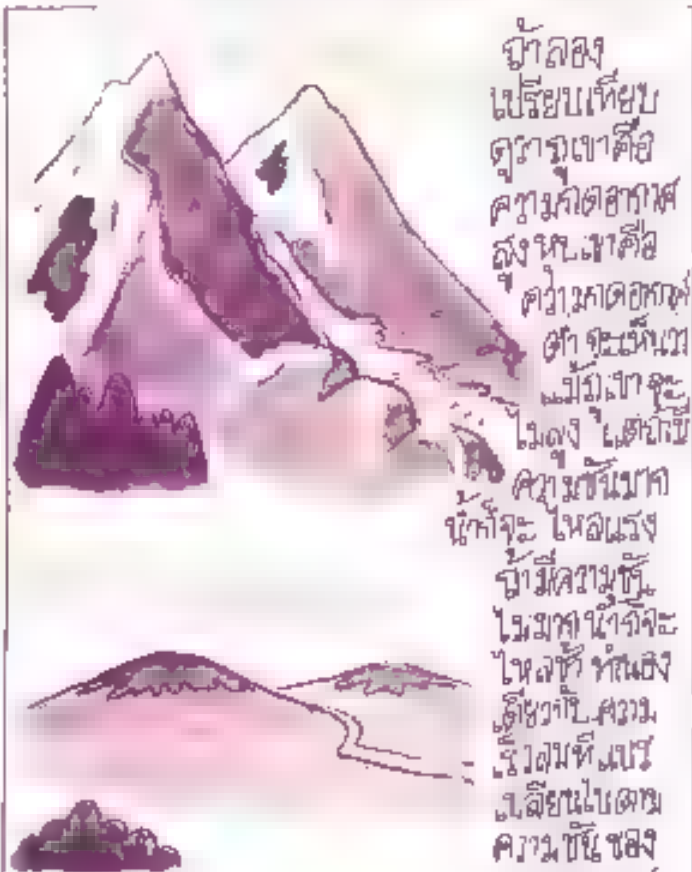 ถ้าลอง
เปรียบเทียบ
ดูว่าภูเขาคือ
ความกดอากาศ
สูง หุบเขาคือ
ความกดอากาศ
ต่ำ จะเห็นว่า
แม้ภูเขาจะ
ไม่สูง แต่ถ้ามี
ความชันมาก
น้ำก็จะไหลแรง
ถ้ามีความชัน
ไม่มากน้ำก็จะ
ไหลช้า ทำนอง
เดียวกับความ
เร็วลมที่แปร
เปลี่ยนไปตาม
ความชันของ